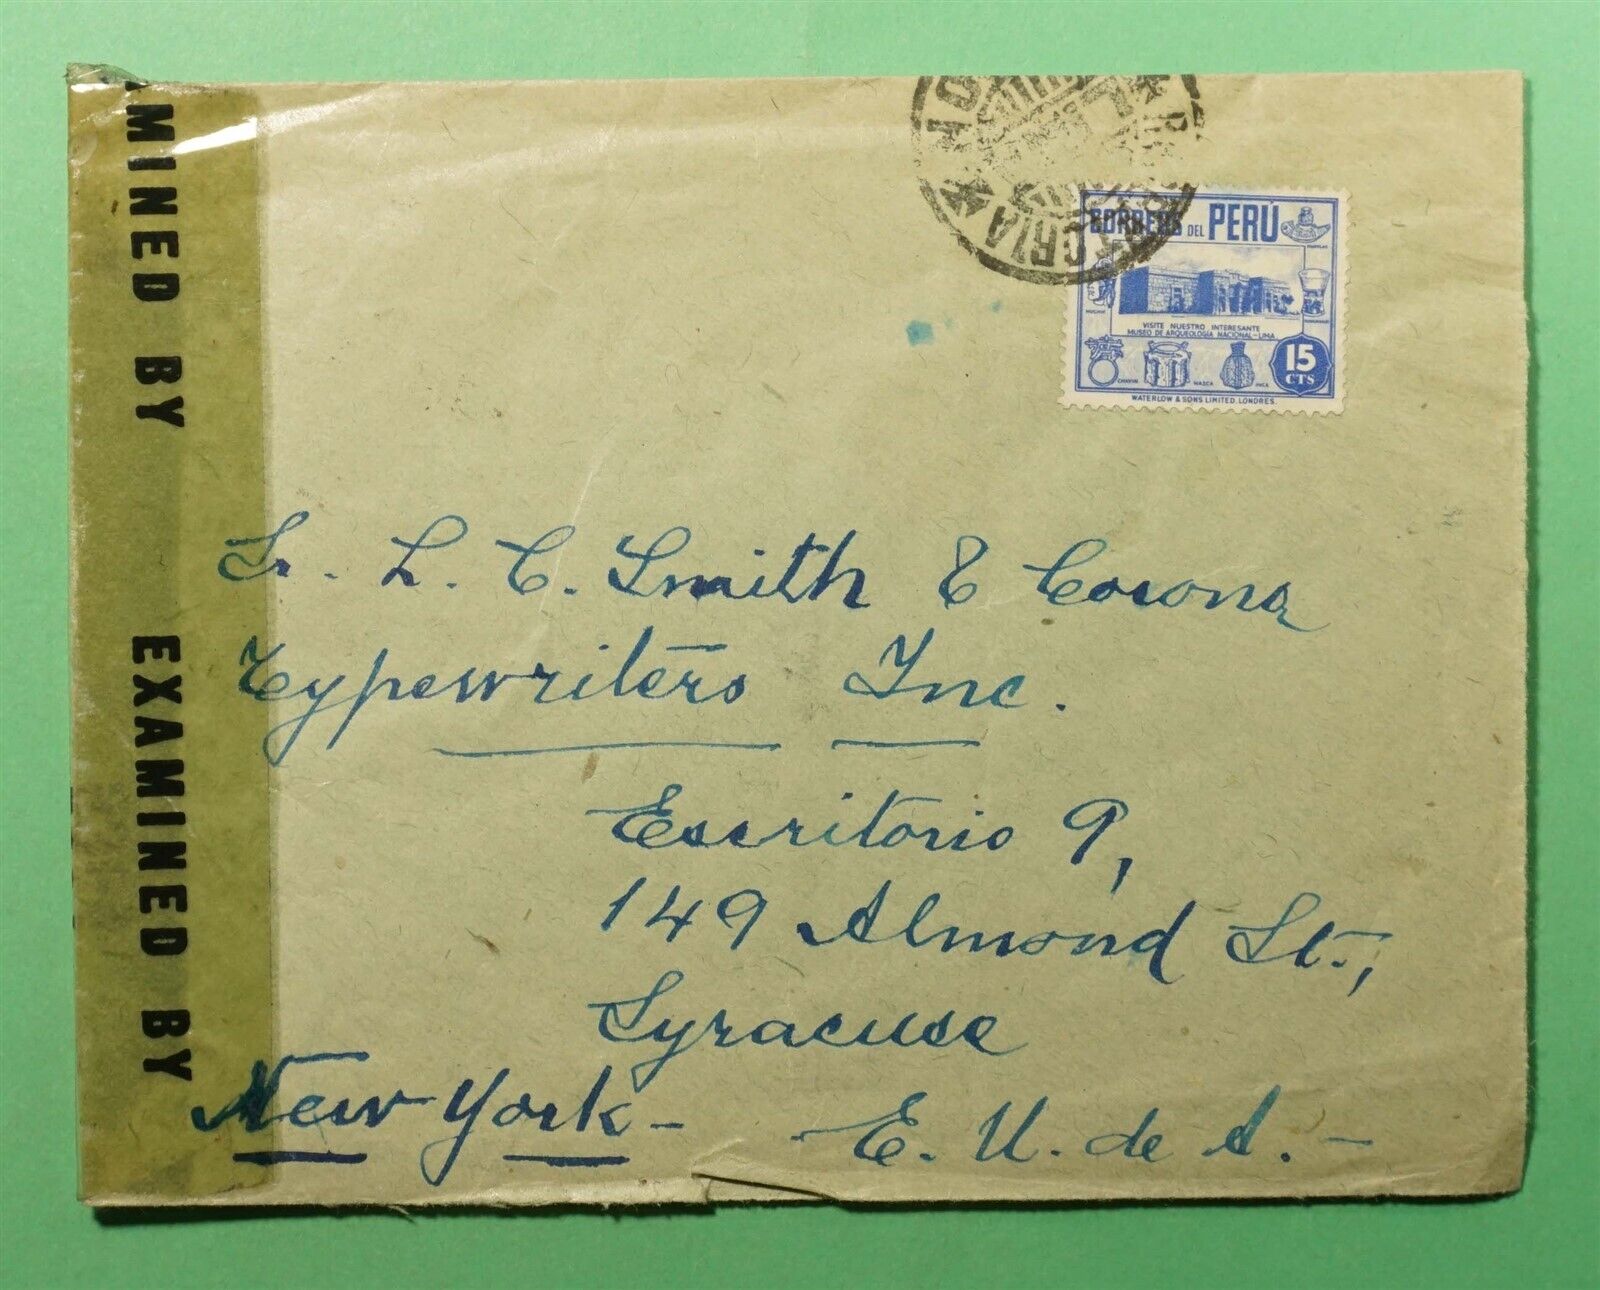 MINED BY
EXAMINED BY
CORREOS DEL PERÚ
VISITE NUESTRO INTERESANTE
MUSEO DE ARQUEOLOGIA NACIONAL-LIMA
CHAVIN
NASCA
INCA
15
CTS
WATERLOW & SONS LIMITED. LONDRES.
Sr. L. C. Smith & Corona
Typewriters Inc.
Escritorio 9,
149 Almond St.,
Syracuse
New York -
E. U. de A. -